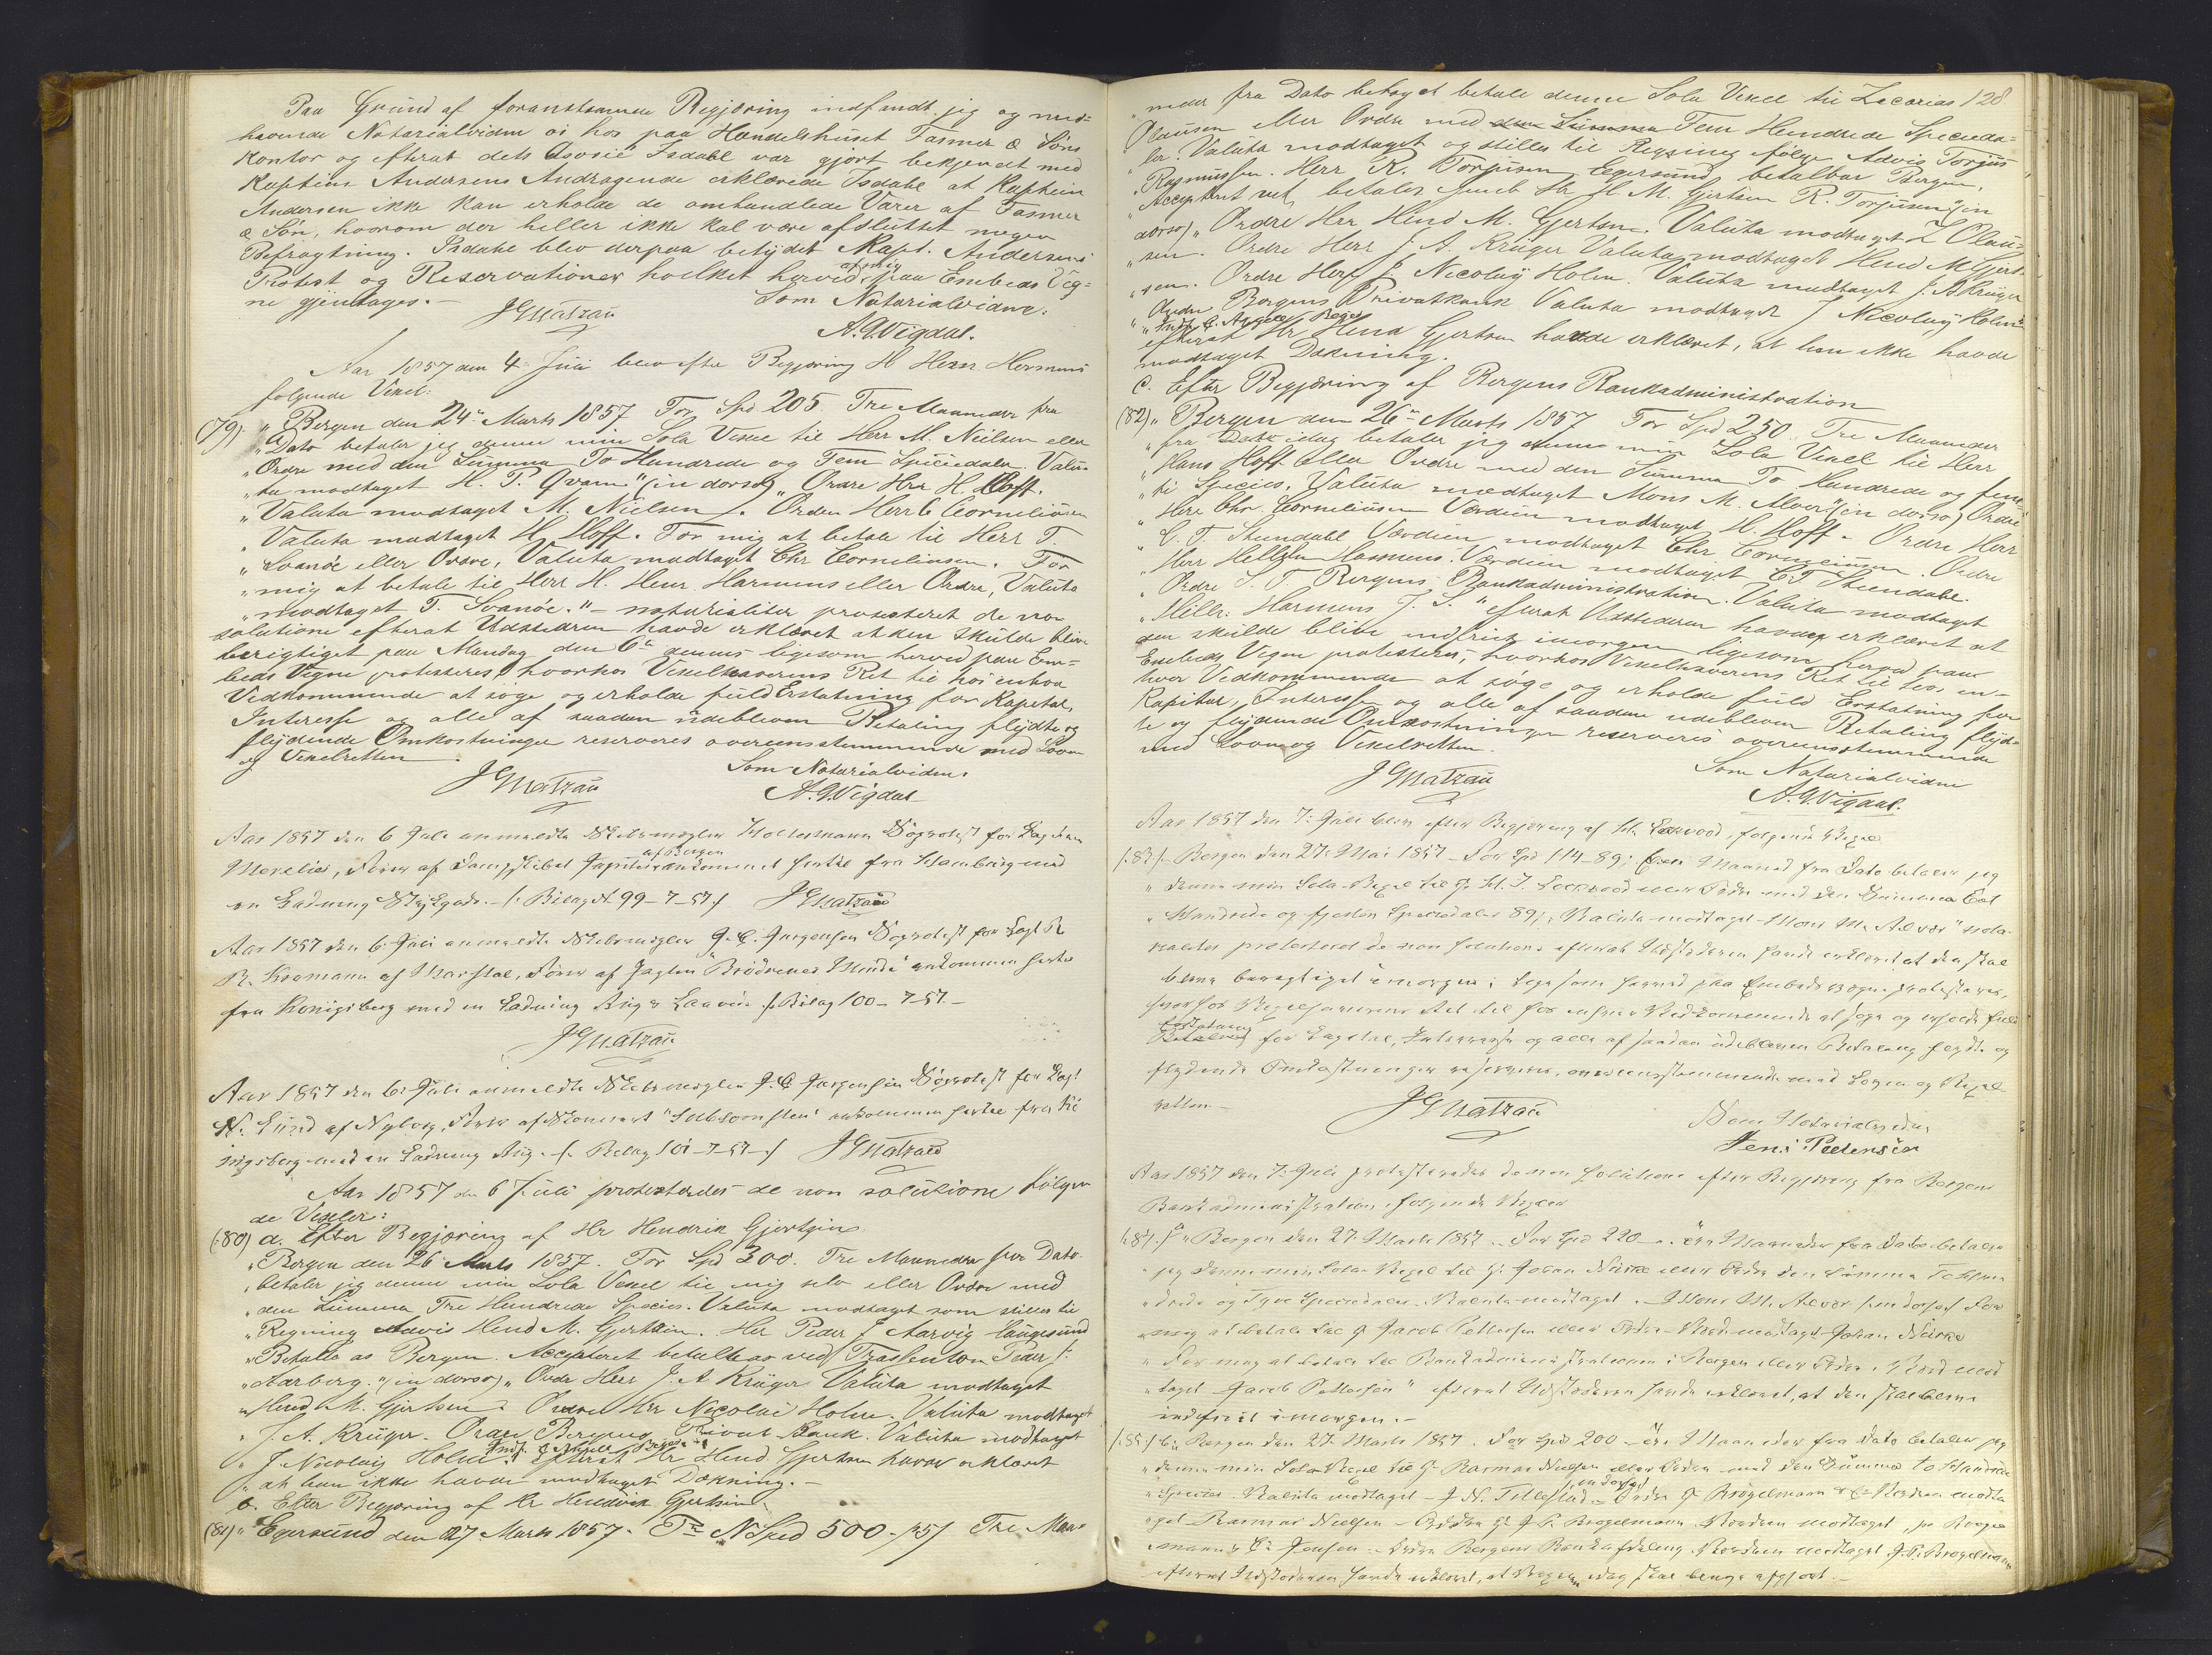 Paa Grund af foranstaaende Begjæring indfandt jeg og med-
havende Notarialvidne os hos paa Handelshuset Fasmer & Søns
Kontor og efterat dets Assosie Isdahl var gjort bekjendt med
Kaptein Andersens Andragende erklærede Isdahl at Kaptein
Andersen ikke kan erholde de omhandlede Varer af Fasmer
& Søn, hvorom der heller ikke skal være afsluttet nogen
Befragtning. Isdahl blev derpaa betydet Kapt. Andersens
Protest og Reservationer hvilket herved af mig paa Embeds Veg=
ne gjentages.-
JGMatzau
Som Notarialvidne:
A. G. Vigdal.
Aar 1857 den 4 Juli blev efter Begjæring H Henr Hermens
følgende Vexel:
(79) "Bergen den 24de Marts 1857. For Spd 205. Tre Maaneder fra
"Dato betaler jeg denne min Sola Vexel til Herr M. Nielsen eller
"Ordre med den Summa To Hundrede og Fem Speciedaler. Valu-
"ta modtaget H. P. Qvam" (in dorso) "Ordre Herr H. Hoff.
"Valuta modtaget M. Nielsen /. Ordre Herr C Corneliusen
"Valuta modtaget H. Hoff. For mig at betale til Herr T.
"Svanöe eller Ordre, Valuta modtaget Chr Corneliusen. For
"mig at betale til Herr H. Henr. Harmens eller Ordre, Valuta
"modtaget T. Svanöe."- notarialiter protesteret de non
solutione efterat Udstederen havde erklæret at den skulde blive
berigtiget paa Mandag den 6te dennes ligesom herved paa Em=
beds Vegne protesteres, hvorhos Vexelhaverens Ret til hos enhver
Vedkommende at søge og erholde fuld Erstatning for Kapital,
Interesse og alle af saadan udebleven Betaling flydte og
flydende Omkostninger reserveres overensstemmende med Loven
og Vexelretten
JGMatzau
Som Notarialvidne:
A. G. Vigdal
Aar 1857 den 6 Juli anmeldte Skibsmægler Søprotest for
Fører af Dampskibet Jupiter af Bergen ankommet hertil fra Hamburg med
en Ladning Stykgods.- /: Bilag N 99-7-57 :/ JGMatzau
Aar 1857 den 6 Juli anmeldte Skibsmægler J. C. Jurgensen Søprotest for Capt R
R. Kromann af Marstal, Fører af Jagten "Brödrenes Minde" ankommen hertil
fra Königsberg med en Ladning Rug & /: Bilag 100-7-57.-
JGMatzau
Aar 1857 den 6 Juli anmeldte Skibsmægler J. C. Jurgensen Søprotest for Capt
N. Lund af Nyborg, Fører af ankommen hertil fra Kö
nigsberg med en Ladning Rug.- /: Bilag 101-7-57 :/ JGMatzau
Aar 1857 den 6 Juli protesteredes de non solutione følgen
de Vexler:
(80) a. Efter Begjæring af Hr Hendrik Gjertsen
"Bergen den 26 Marts 1857. For Spd 300. Tre Maaneder fra Dato
"betaler jeg denne min Sola Vexel til mig selv eller Ordre med
"den Summa Tre Hundrede Species. Valuta modtaget som stilles til
"Regning Advis Hend M. Gjertsen. Hr Peder J Aarvig Haugesund
"Betalbar Bergen. Accepteret betalbar ved Trassenten Peder J.
"Aarberg." (in dorso) "Ordre Herr J. A Krüger Valuta modtaget
"Hend M. Gjertsen. Ordre Hr Nicolai Holm. Valuta modtaget
"J. A. Krüger. Ordre Bergens Privat Bank. Valuta modtaget
"J. Nicolay Holm." Efterat Hr Hend. Gjertsen havde erklæret
"at han ikke havde modtaget Dækning.-
b. Efter Begjæring af Hr Hendrik Gjertsen
(81) "Egersund den 27 Marts 1857. Pr N Sped 500. Tre Maa-
128
neder fra Dato behaget betale denne Sola Vexel til Zacarias
Olausen eller Ordre med Fem Hundrede Specieda-
ler. Valuta modtaget og stilles til Regning følge Advis Torjus
"Rasmussen. Herr R. Torjusen Egersund betalbar Bergen.
"Accepteret betales hos Hr H. M. Gjertsen R. Torjusen" (in
dorso) "Ordre Hrr Hend M. Gjertsen. Valuta modtaget Z Olau-
"sen. Ordre Herr J. A. Krüger Valuta modtaget Hend M Gjert-
"sen. Ordre Herr J. Nicolay Holm. Valuta modtaget J. A. Krüger
"Ordre Bergens Privatbank Valuta modtaget J Nicolay Holm"
efterat Hr Hend Gjertsen havde erklæret, at han ikke havde
modtaget Dækning.
c. Efter Begjæring af Bergens Bankadministration
(82) "Bergen den 26de Marts 1857 For Spd 250. Tre Maaneder
"fra Dato idag betaler jeg denne min Sola Vexel til Herr
"Hans Hoff eller Ordre med den Summa To hundrede og fem-
"ti Species. Valuta modtaget Mons M. Alver" (in dorso) Ordre
"Herr Chr. Corneliusen Værdien modtaget H. Hoff.- Ordre Herr
"C. F. Stendahl Værdien modtaget Chr Corneliusen. Ordre
"Herr Harmens. Værdien modtaget C F Stendahl.
"Ordre S. T. Bergens Bankadministration. Valuta modtaget
"Hilbr: Harmens J. S." efterat Udstederen havde erklæret at
den skulde blive indfriet imorgen ligesom herved paa
Embeds Vegne protesteres, hvorhos Vexelhaverens Ret til hos en-
hver Vedkommende at søge og erholde fuld Erstatning for
Kapital, Interesse og alle af saadan udebleven Betaling flyd-
te og flydende Omkostninger reserveres overensstemmende
med Loven og Vexelretten.
JGMatzau
Som Notarialvidne
A. G. Vigdal.
Aar 1857 den 7. Juli blev efter Begjæring af følgende Vexel
/:83:/ Bergen den 27. Mai 1857 For Spd 114-89; Een Maaned fra Dato betaler jeg
"denne min Sola-Vexel til eller Ordre med den Summa Eet
"Hundrede og fjorten Speciedaler 89; Valuta modtaget Mons M. Alver" nota-
rialiter protesteret de non solutione efterat Udstederen havde erklæret at den skal
blive berigtiget imorgen; ligesom herved paa Embeds Vegne protesteres,
hvorhos Vexelhaverens Ret til hos enhver Vedkommende at søge og erholde fuld
Erstatning for Capital, Interesse og alle af saadan udebleven Betaling flydte og
flydende Omkostninger reserveres, overensstemmende med Loven og Vexel-
retten.-
JGMatzau
Som Notarialvidne
Jens Pedersen
Aar 1857 den 7. Juli protesteredes de non solutione efter Begjæring fra Bergens
Bankadministration følgende Vexler
/:84:/ a "Bergen den 27. Marts 1857. For Spd 220 Maaneder fra Dato betaler
"jeg denne min Sola Vexel til Hr Johan eller Ordre den Summa To Hun
"drede og Tyve Speciedaler. Valuta modtaget. Mons M. Alver /:in dorso:/ For
"mig at betale til Hr Jacob Pettersen eller Ordre. modtaget Johan
"For mig at betale til Bankadministrationen i Bergen eller Ordre. mod
"taget Jacob Pettersen" efterat Udstederen havde erklæret, at den skal blive
indfriet imorgen.-
/:85:/ b: Bergen den 27. Marts 1857. For Spd 200 Maaneder fra Dato betaler jeg
"denne min Sola Vexel til Hr Rasmus Nielsen eller Ordre med den Summa to Hundrede
"Species. Valuta modtaget /:in dorso:/ Ordre Hr Brögelmann Værdien modta
"get Rasmus Nielsen - Ordre Hr J. P. Brogelmann Værdien modtaget
Jensen. Ordre Bergens Bankafdeling Værdien modtaget J. P. Brogelmann
efterat Udstederen havde erklæret, at Vexelen idag skal blive afgjort.-